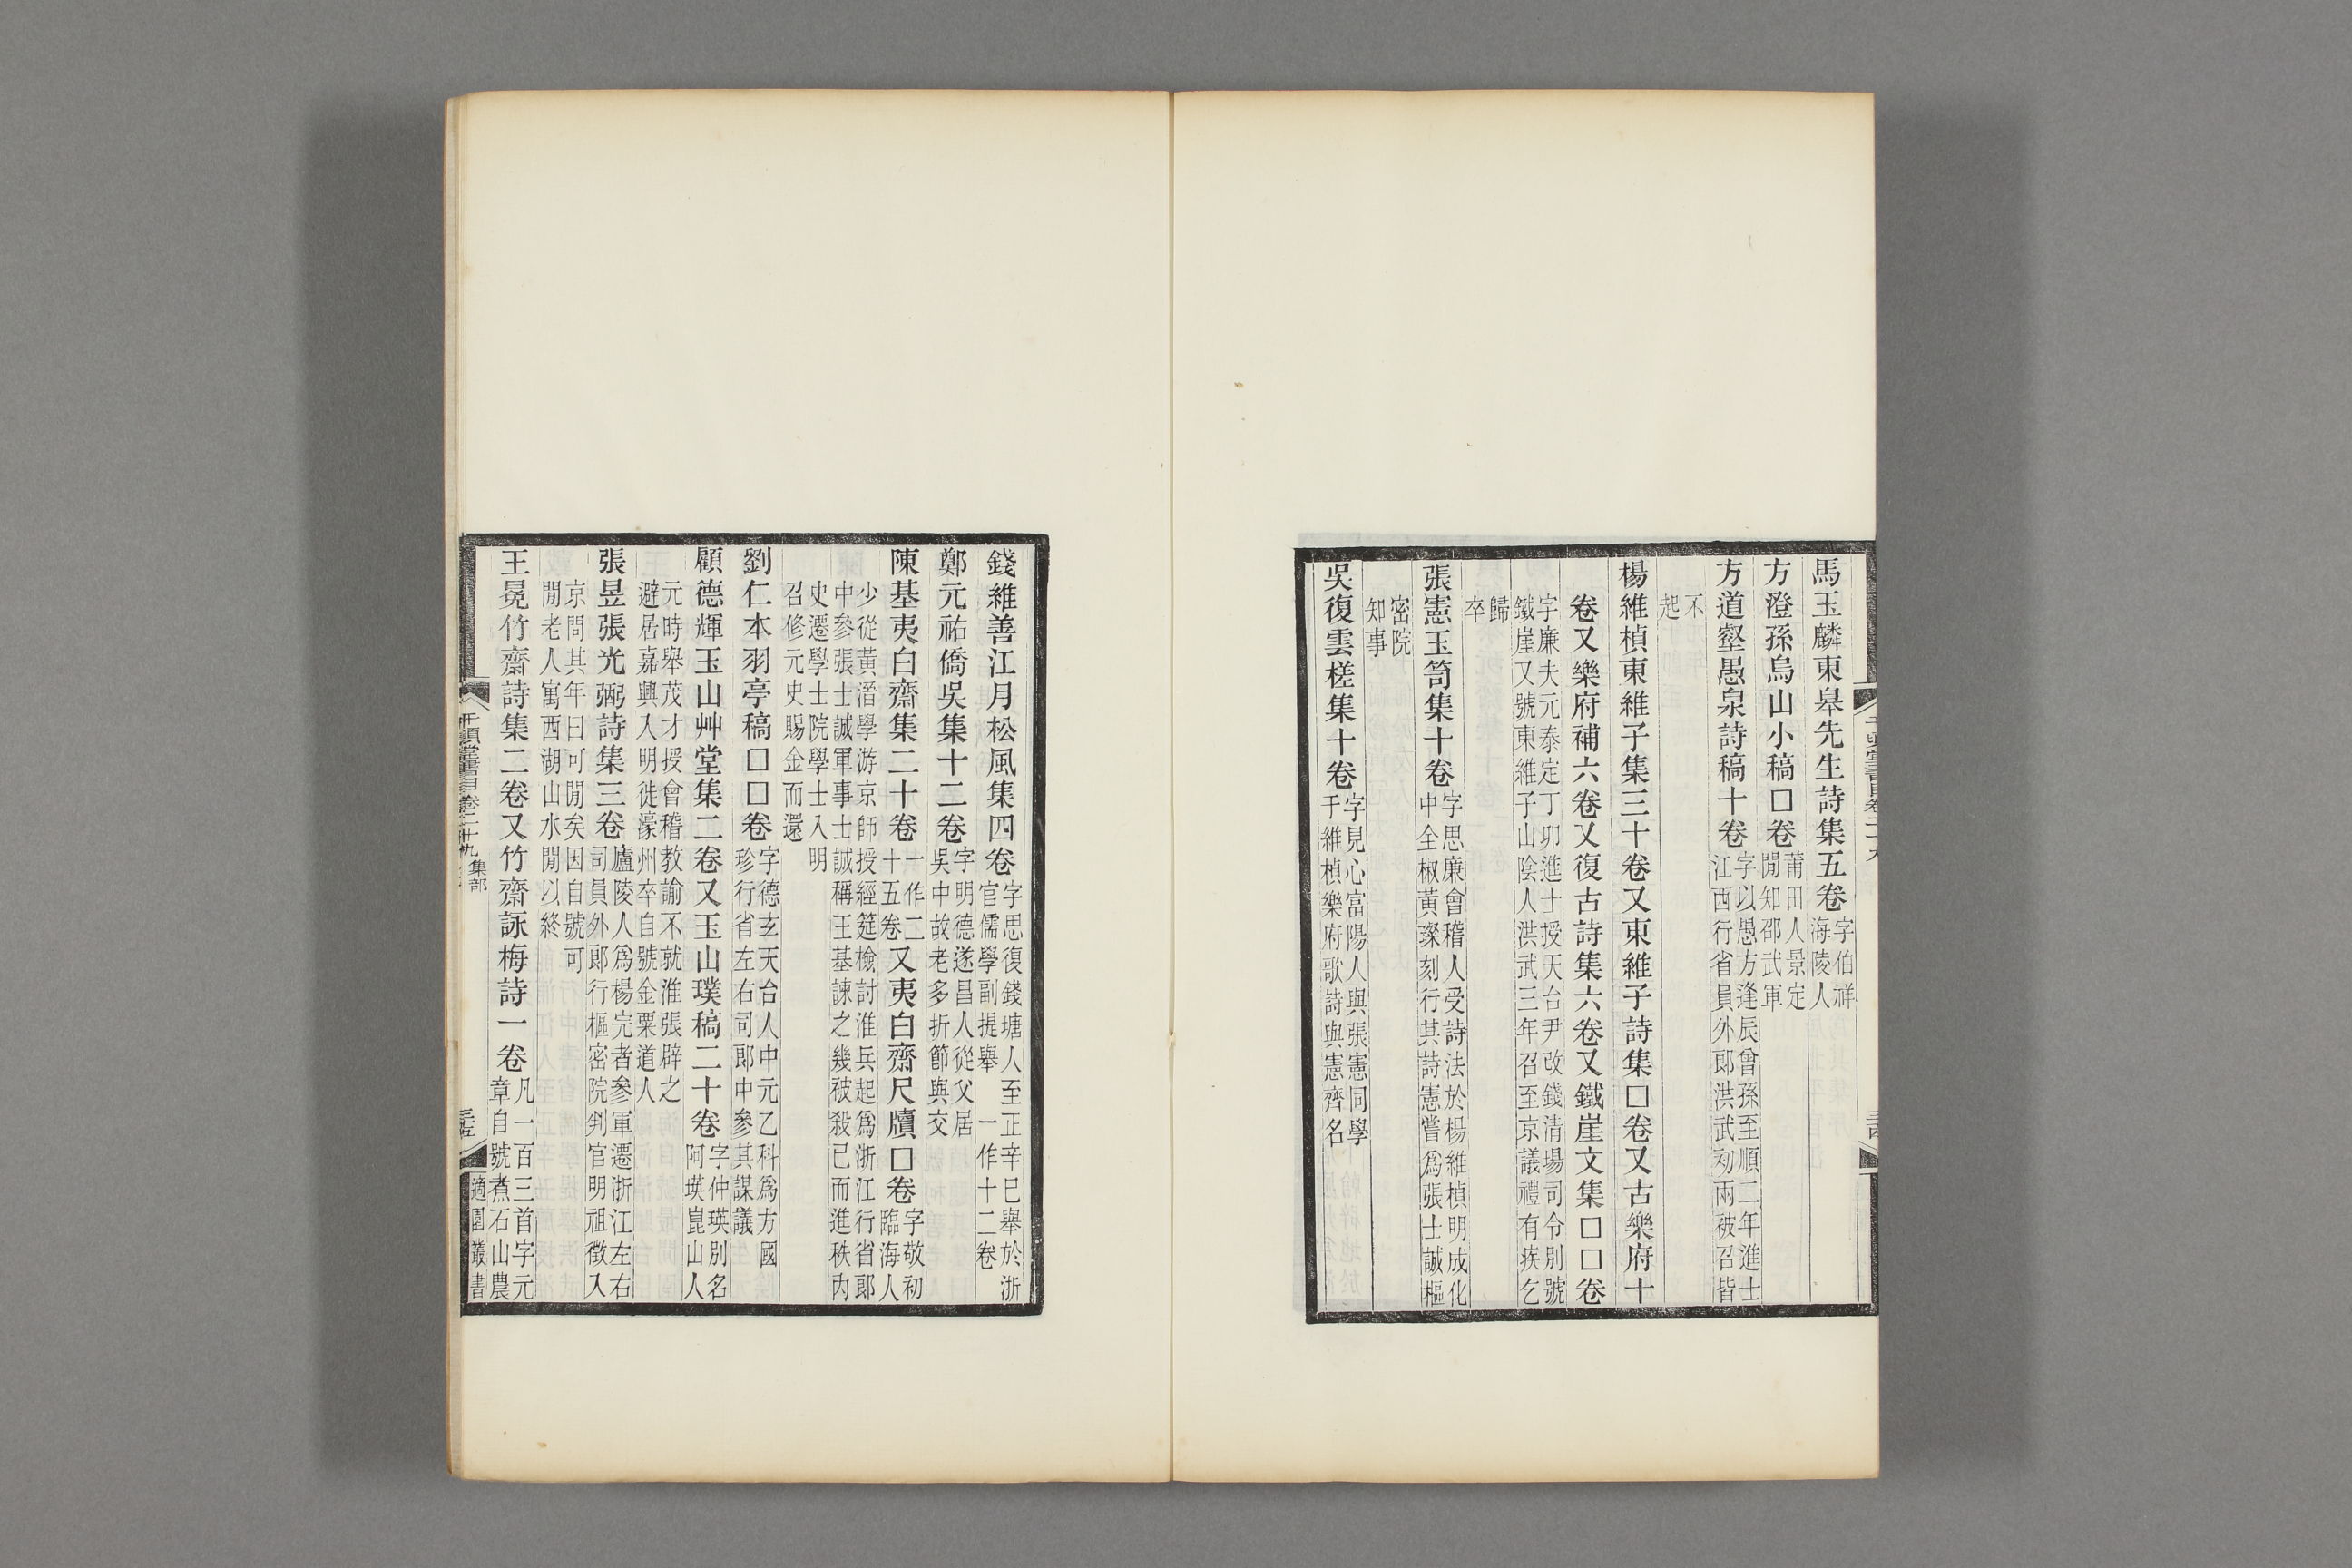 馬玉麟東皋先生詩集五卷字伯祥海陵人
方澄孫烏山小稿囗卷莆田人景定閒知邵武軍
方道壑愚泉詩稿十卷字以愚方逢辰曾孫至順二年進士江西行省員外郎洪武初兩被召皆
不起
楊維楨東維子集三十卷又東維子詩集囗卷又古樂府十
卷又樂府補六卷又復古詩集六卷又鐵崖文集囗囗卷
字廉夫元泰定丁卯進士授天台尹改錢清場司令別號鐵崖又號東維子山陰人洪武三年召至京議禮有疾乞
歸卒
張憲玉笥集十卷字思廉會稽人受詩法於楊維楨明成化中全椒黃璨刻行其詩憲嘗爲張士誠樞
密院知事
吳復雲槎集十卷字見心富陽人與張憲同學于維楨樂府歌詩與憲齊名
錢維善江月松風集四卷字思復錢塘人至正辛巳舉於浙官儒學副提舉 一作十二卷
鄭元祐僑吳集十二卷字明德遂昌人從父居吳中故老多折節與交
陳基夷白齋集二十卷一作二十五卷又夷白齋尺牘囗卷字敬初臨海人
少從黃溍學游京師授經筵檢討淮兵起爲浙江行省郎中參張士誠軍事士誠稱王基諫之幾被殺已而進秩內
史遷學士院學士入明召修元史賜金而還
劉仁本羽亭稿囗囗卷字德玄天台人中元乙科爲方國珍行省左右司郎中參其謀議
顧德輝玉山艸堂集二卷又玉山璞稿二十卷字仲瑛別名阿瑛崑山人
元時舉茂才授會稽教諭不就淮張辟之避居嘉興入明徙濠州卒自號金粟道人
張昱張光弼詩集三卷廬陵人爲楊完者參軍遷浙江左右司員外郎行樞密院判官明祖徵入
京問其年曰可閒矣因自號可閒老人寓西湖山水閒以終
王冕竹齋詩集二卷又竹齋詠梅詩一卷凡一百三首字元章自號煮石山農
千頃堂書目卷二十九 集部
適園叢書